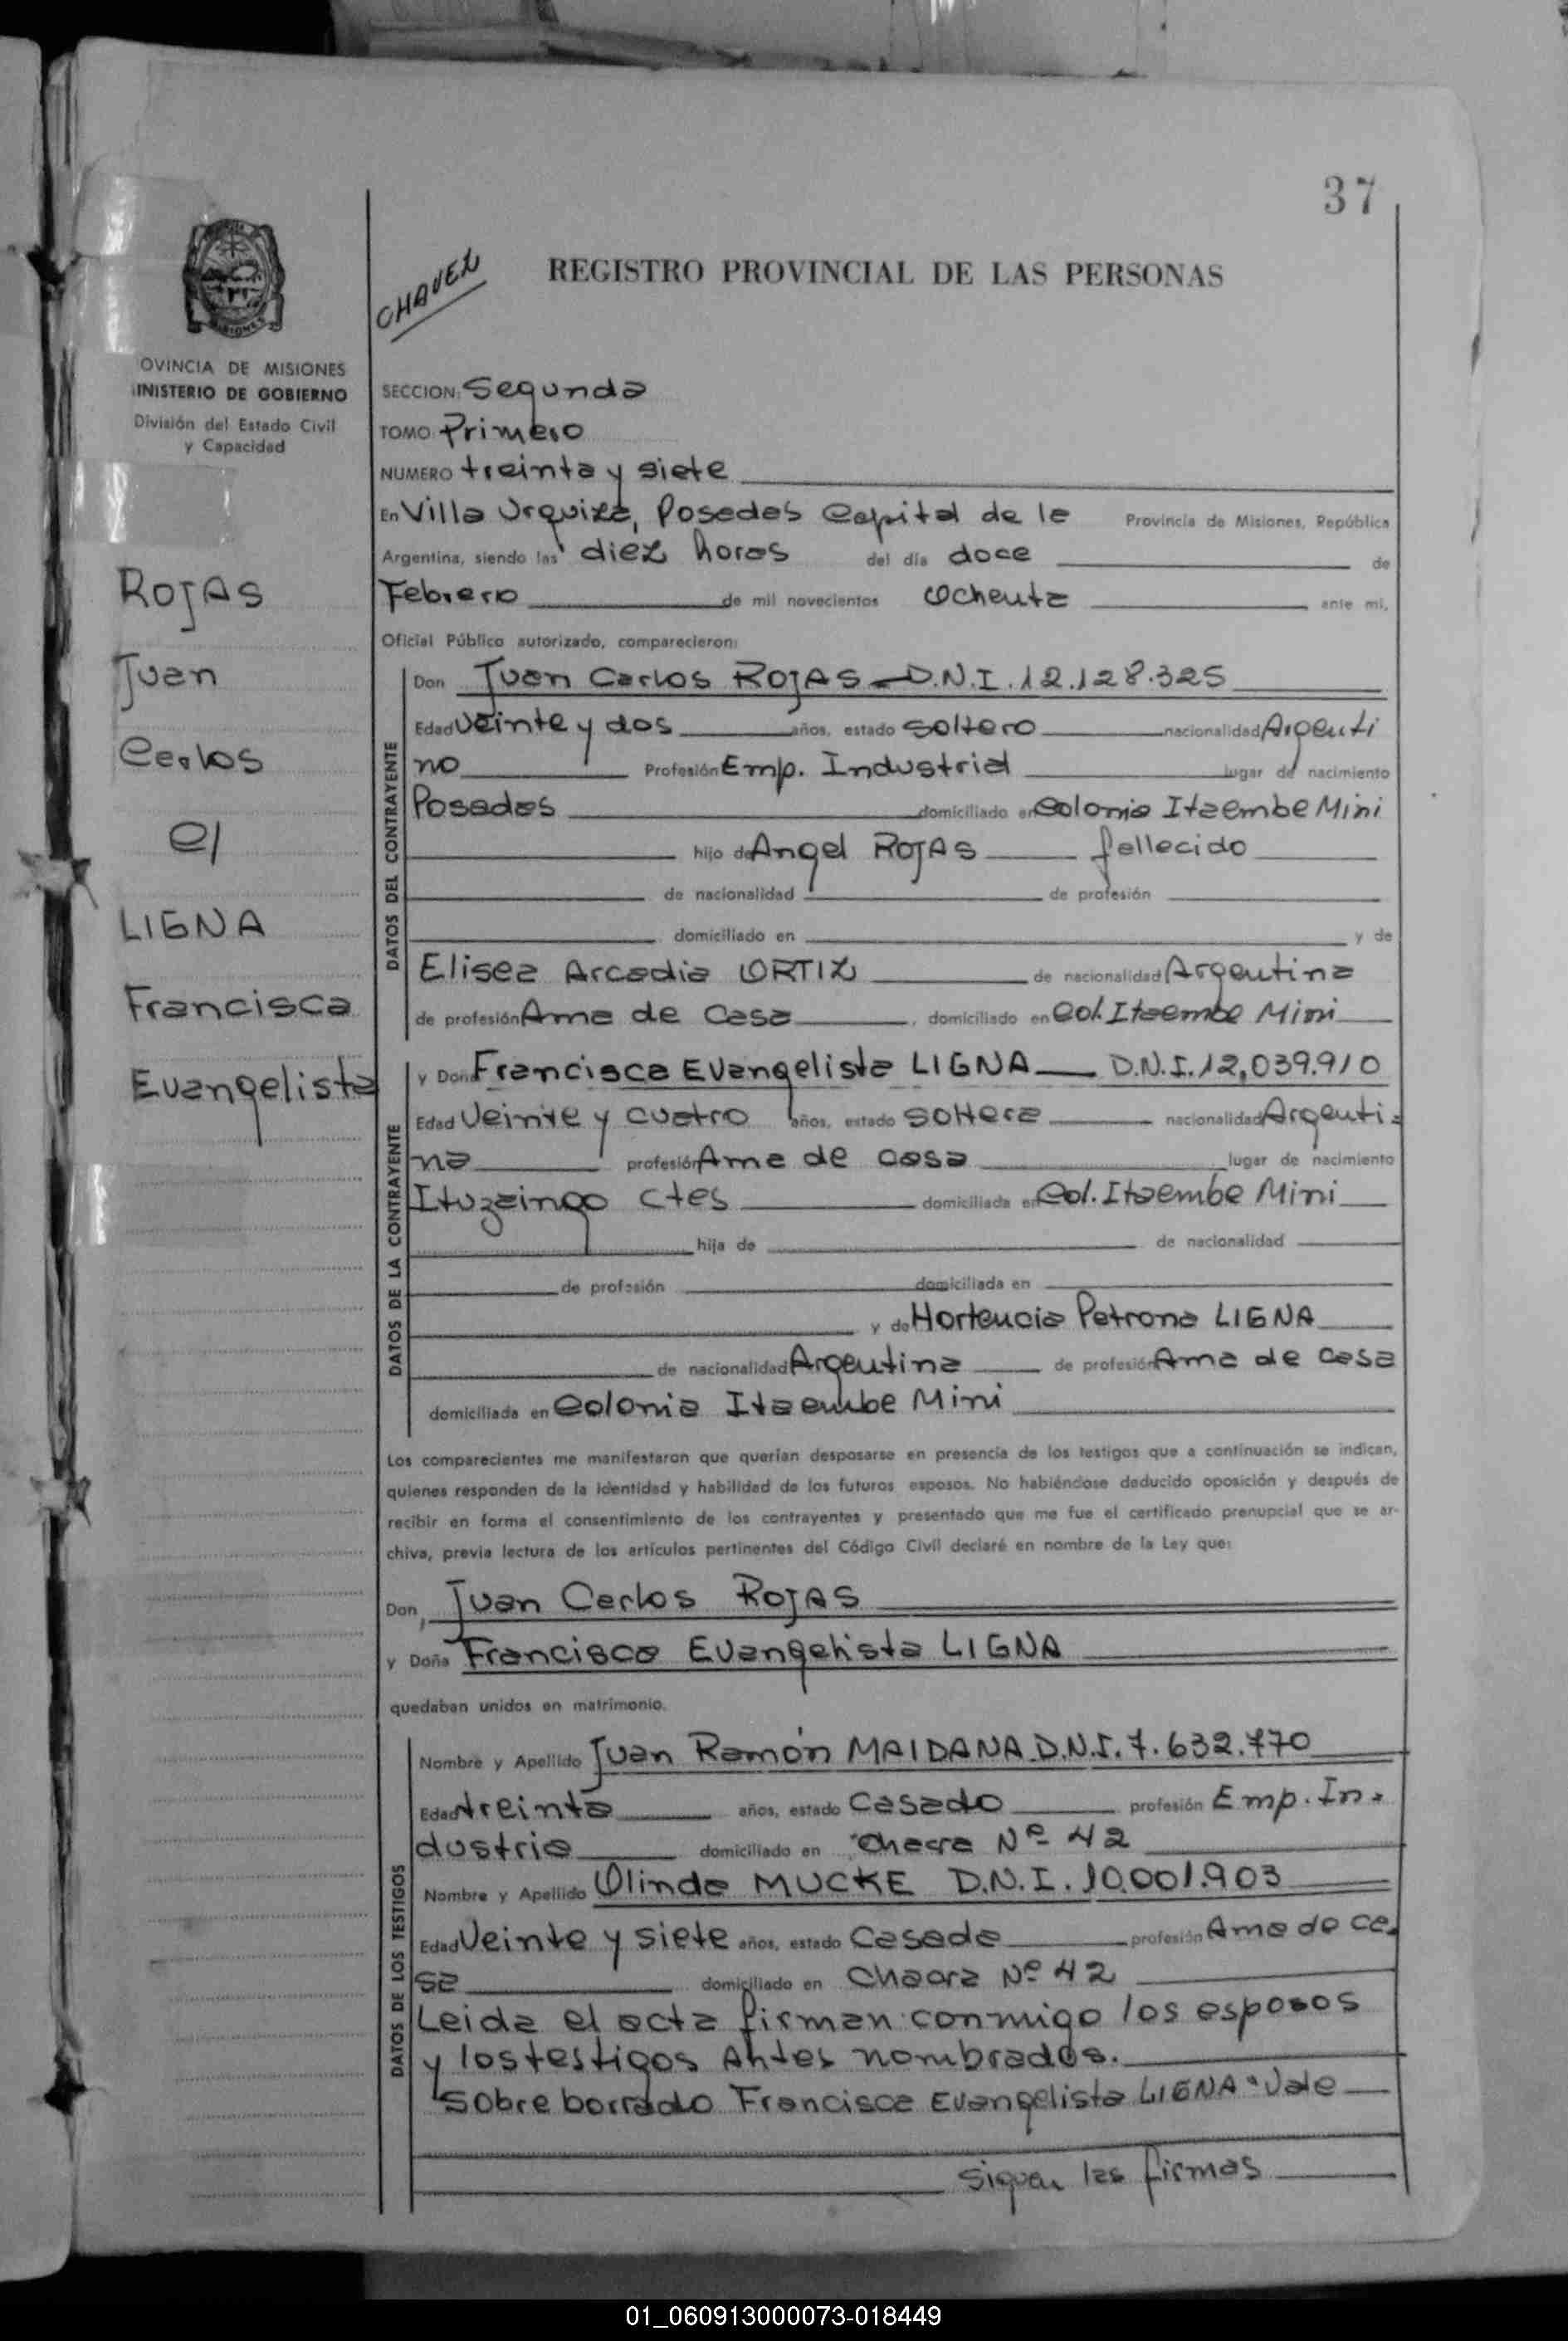 37
CHAVEZ
REGISTRO PROVINCIAL DE LAS PERSONAS
MISIONES
OVINCIA DE MISIONES
INISTERIO DE GOBIERNO
División del Estado Civil
y Capacidad
ROJAS
Juan
Carlos
C/
LIGNA
Francisca
Evangelista
SECCION: Segunda
TOMO Primero
NUMERO treinta y siete
En Villa Urquiza, Posadas Capital de la Provincia de Misiones, República
Argentina, siendo las diez horas del día doce de
Febrero de mil novecientos Ochenta ante mi,
Oficial Público autorizado, comparecieron:
DATOS DEL CONTRAYENTE
Don Juan Carlos ROJAS - D.N.I. 12.128.325
Edad Veinte y dos años, estado soltero nacionalidad Argenti
no Profesión Emp. Industrial lugar de nacimiento
Posadas domiciliado en Colonia Itaembe Mini
hijo de Angel ROJAS fallecido
de nacionalidad de profesión
domiciliado en y de
Elisea Arcadia ORTIZ de nacionalidad Argentina
de profesión Ama de Casa, domiciliado en Col. Itaembe Mini
DATOS DE LA CONTRAYENTE
y Doña Francisca Evangelista LIGNA D.N.I. 12.039.910
Edad Veinte y cuatro años, estado soltera nacionalidad Argenti-
na profesión Ama de casa lugar de nacimiento
Ituzaingo Ctes domiciliada en Col. Itaembe Mini
hija de de nacionalidad
de profesión domiciliada en
y de Hortencia Petrona LIGNA
de nacionalidad Argentina de profesión Ama de casa
domiciliada en Colonia Itaembe Mini
Los comparecientes me manifestaron que querían desposarse en presencia de los testigos que a continuación se indican,
quienes responden de la identidad y habilidad de los futuros esposos. No habiéndose deducido oposición y después de
recibir en forma el consentimiento de los contrayentes y presentado que me fue el certificado prenupcial que se ar-
chiva, previa lectura de los artículos pertinentes del Código Civil declaré en nombre de la Ley que:
Don, Juan Carlos ROJAS
y Doña Francisca Evangelista LIGNA
quedaban unidos en matrimonio.
DATOS DE LOS TESTIGOS
Nombre y Apellido Juan Ramón MAIDANA D.N.I. 7.632.770
Edad treinta años, estado Casado profesión Emp. In-
dustria domiciliado en Chacra Nº 42
Nombre y Apellido Olinda MUCKE D.N.I. 10.001.903
Edad Veinte y siete años, estado Casada profesión Ama de Ca-
sa domiciliado en Chacra Nº 42
Leida el acta firman conmigo los esposos
y los testigos Antes nombrados.
Sobre borrado Francisca Evangelista LIGNA "Vale
Siguen las firmas
01_060913000073-018449